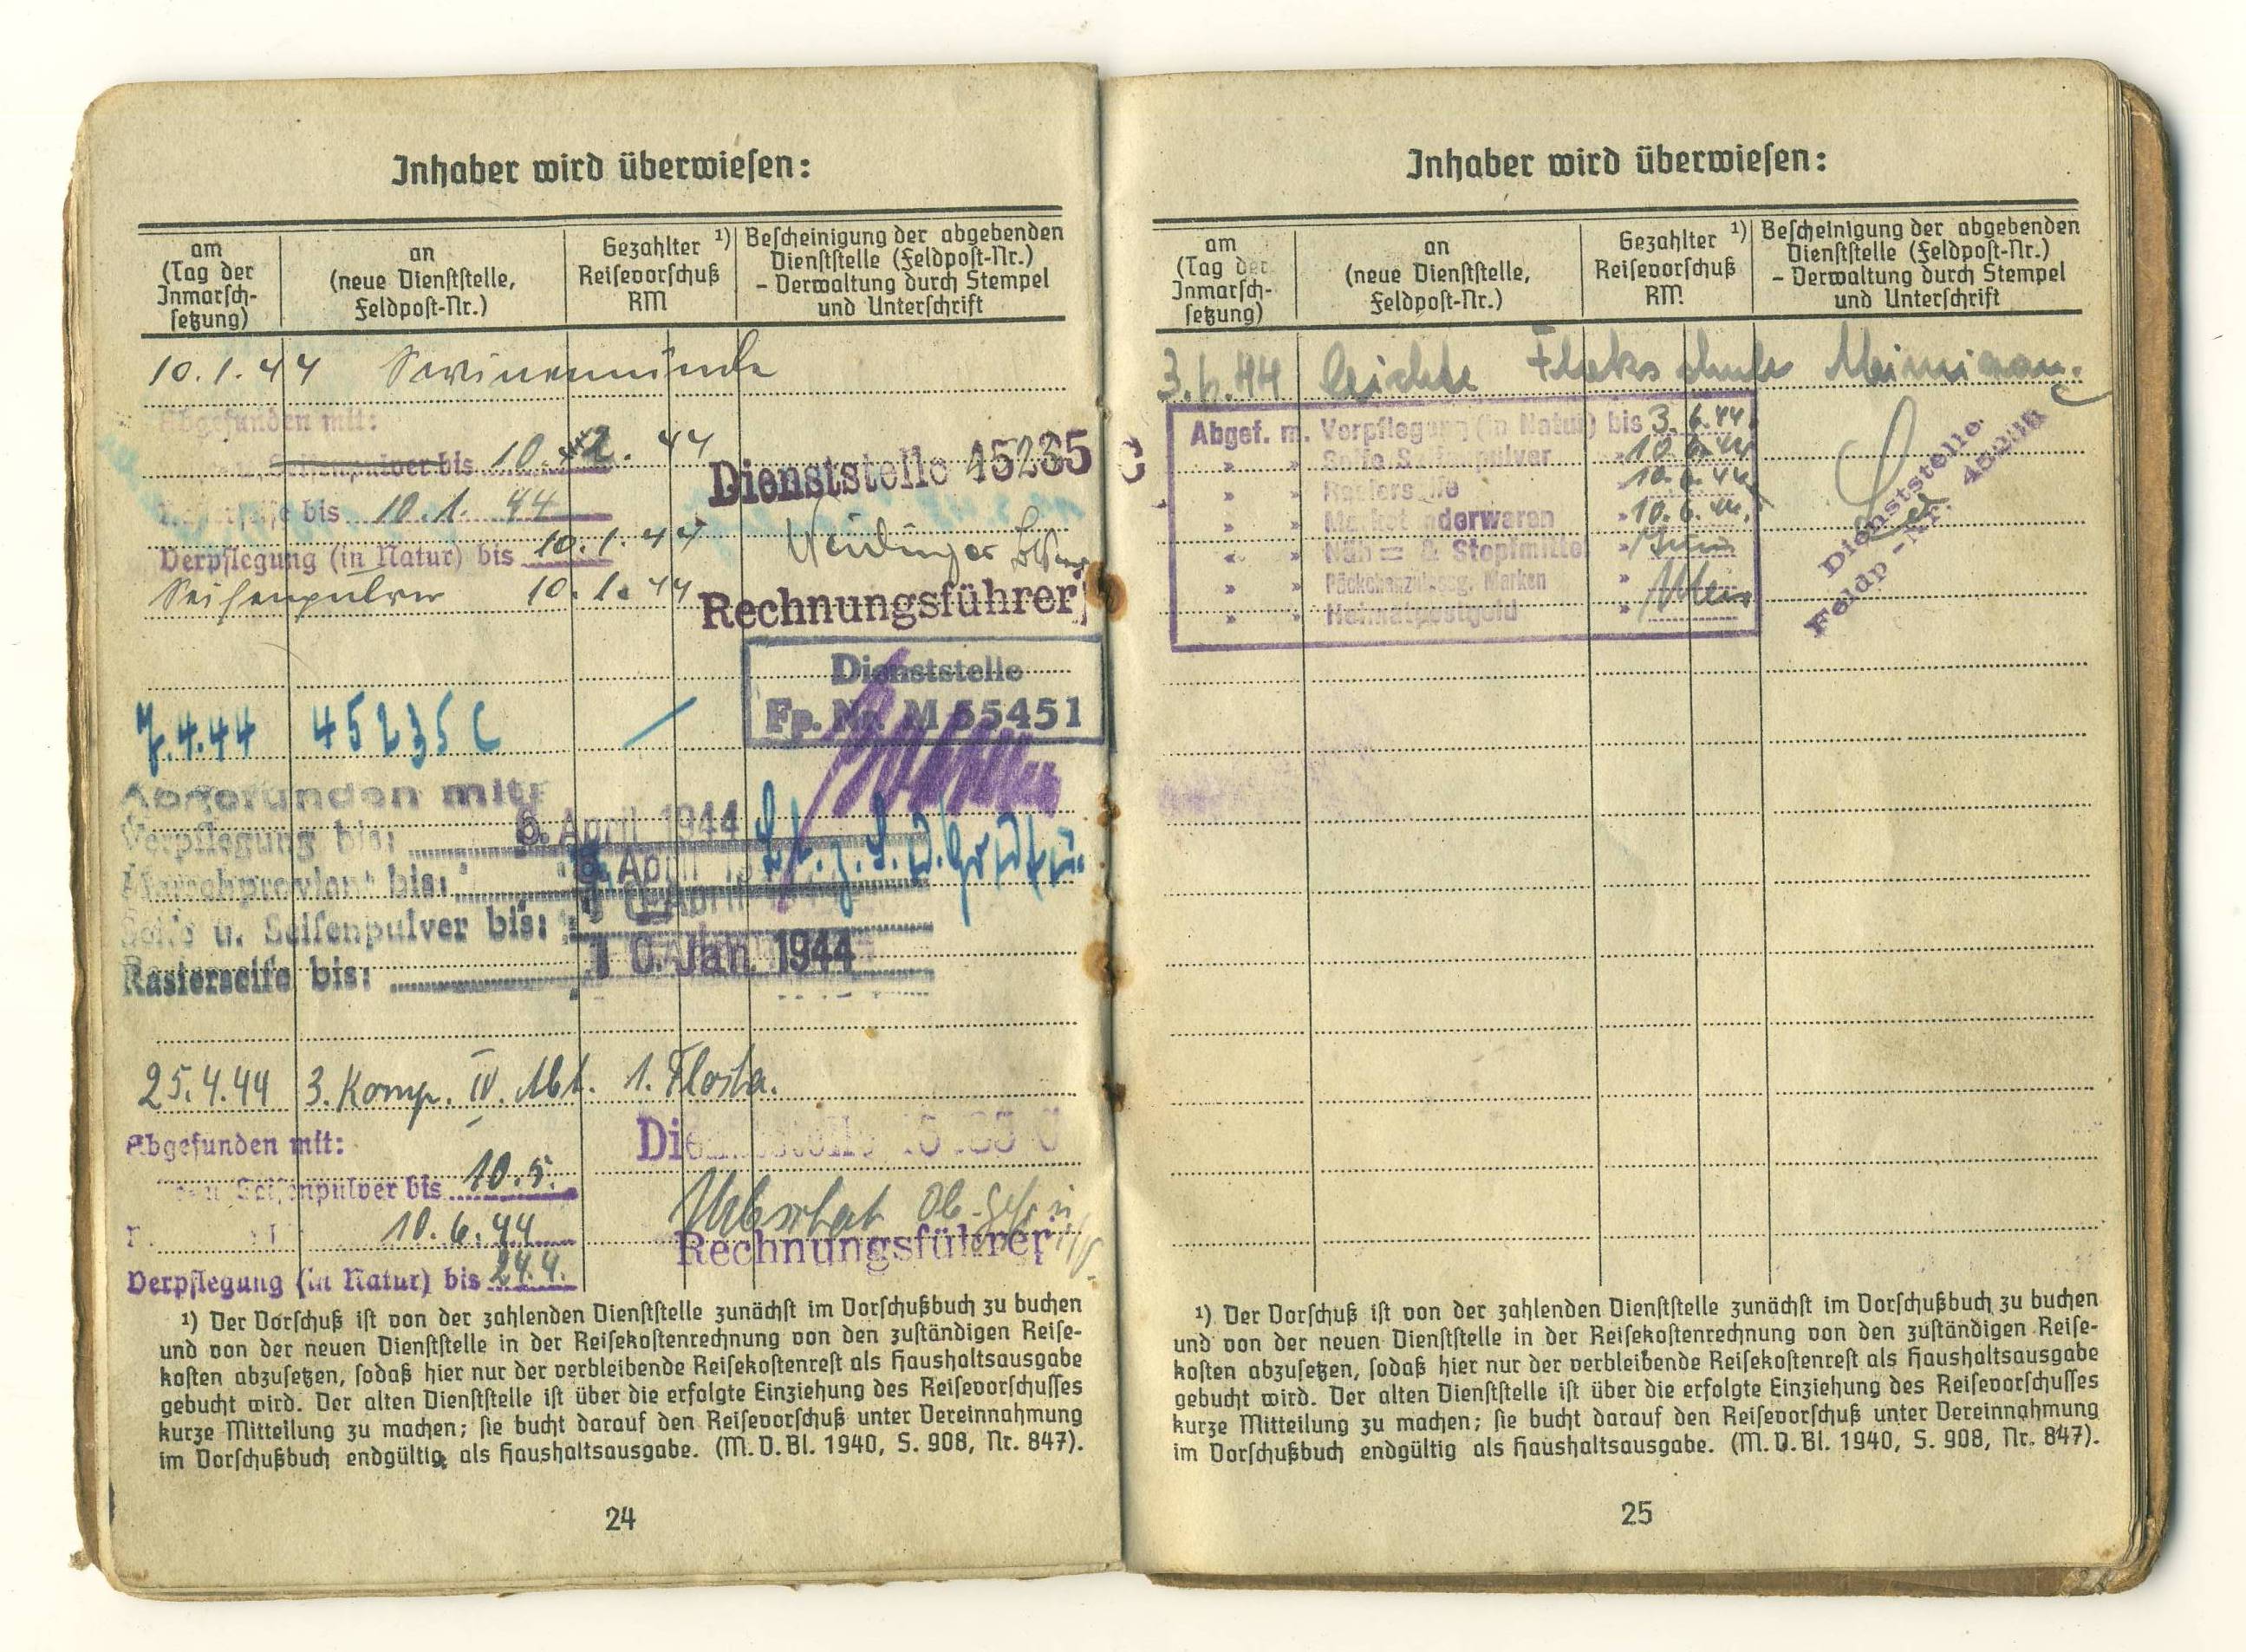 Inhaber wird überwiesen:
am
(Tag der
Inmarsch-
setzung)
an
(neue Dienststelle,
Feldpost-Nr.)
Gezahlter ¹)
Reisevorschuß
RM
Bescheinigung der abgebenden
Dienststelle (Feldpost-Nr.)
- Verwaltung durch Stempel
und Unterschrift
10.1.44 Swinemünde
Abgefunden mit:
Seifenpulver bis 10. 2. 44
Dienststelle 45235 C
bis 10.1. 44
Verpflegung (in Natur) bis 10.1.44
Seifenpulver 10.1.44
Rechnungsführer
Dienststelle
Fp. Nr. M 55451
7.4.44 45235 C
Abgefunden mit:
Verpflegung bis: 6. April 1944
Marschproviant bis: April
Seife u. Seifenpulver bis: April
Rasierseife bis: 10. Jan. 1944
25.4.44 3. Komp. IV. Abt. 1. Flosta.
Abgefunden mit:
Dienststelle
Seifenpulver bis 10.5.
10.6.44
Rechnungsführer
Verpflegung (in Natur) bis 24.4.
¹) Der Vorschuß ist von der zahlenden Dienststelle zunächst im Vorschußbuch zu buchen
und von der neuen Dienststelle in der Reisekostenrechnung von den zuständigen Reise-
kosten abzusetzen, sodaß hier nur der verbleibende Reisekostenrest als Haushaltsausgabe
gebucht wird. Der alten Dienststelle ist über die erfolgte Einziehung des Reisevorschusses
kurze Mitteilung zu machen; sie bucht darauf den Reisevorschuß unter Vereinnahmung
im Vorschußbuch endgültig als Haushaltsausgabe. (M. V. Bl. 1940, S. 908, Nr. 847).
24
Inhaber wird überwiesen:
am
(Tag der
Inmarsch-
setzung)
an
(neue Dienststelle,
Feldpost-Nr.)
Gezahlter ¹)
Reisevorschuß
RM
Bescheinigung der abgebenden
Dienststelle (Feldpost-Nr.)
- Verwaltung durch Stempel
und Unterschrift
3.6.44 leichte Flakschule
Abgef. m. Verpflegung (in Natur) bis 3.6.44
" " Seife S. pulver " 10.6.44
" " Rasierseife " 10.6.44
" " Marketenderwaren " 10.6.44
" " Näh= & Stopfmittel " Juni
" " Päckchenzulassg. Marken "
" " Heimatpostgeld "
Dienststelle
Feldp.-Nr.
¹) Der Vorschuß ist von der zahlenden Dienststelle zunächst im Vorschußbuch zu buchen
und von der neuen Dienststelle in der Reisekostenrechnung von den zuständigen Reise-
kosten abzusetzen, sodaß hier nur der verbleibende Reisekostenrest als Haushaltsausgabe
gebucht wird. Der alten Dienststelle ist über die erfolgte Einziehung des Reisevorschusses
kurze Mitteilung zu machen; sie bucht darauf den Reisevorschuß unter Vereinnahmung
im Vorschußbuch endgültig als Haushaltsausgabe. (M. V. Bl. 1940, S. 908, Nr. 847).
25